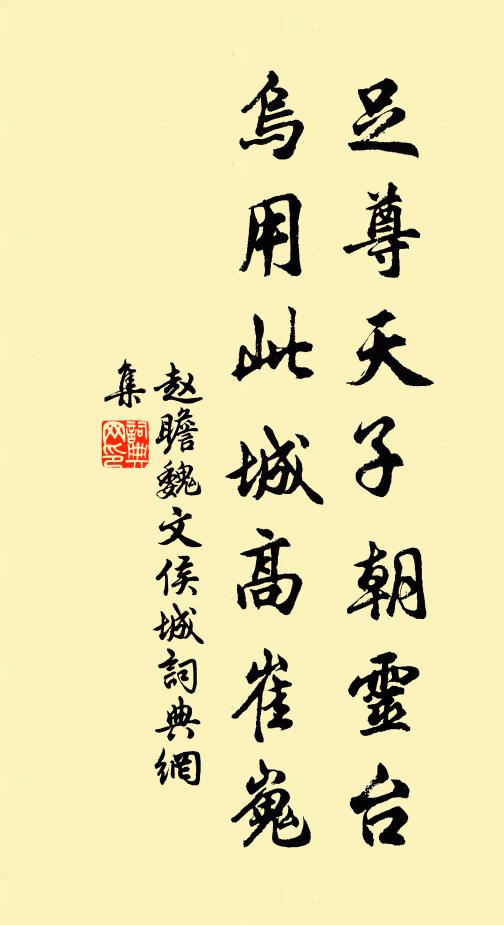 足尊天子朝靈台
烏用此城高崔嵬
赵瞻魏文侯城詞典網
集
詞典
网印